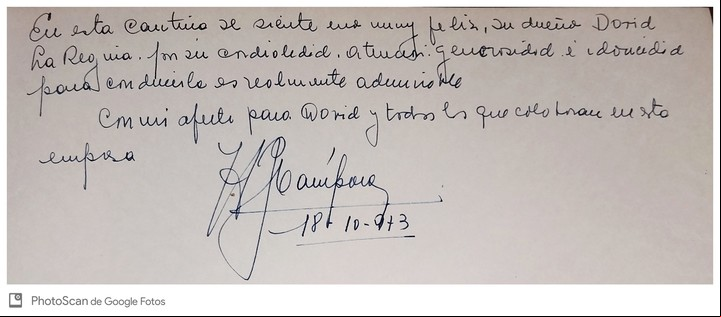 En esta cantina se siente uno muy feliz, su dueño David
La Regina. por su cordialidad. atención: generosidad é idoneidad
para conducirla es realmente admirable
Con mi afecto para David y todos los que colaboran en esta
empresa
H J Cámpora
18-10-973
PhotoScan de Google Fotos